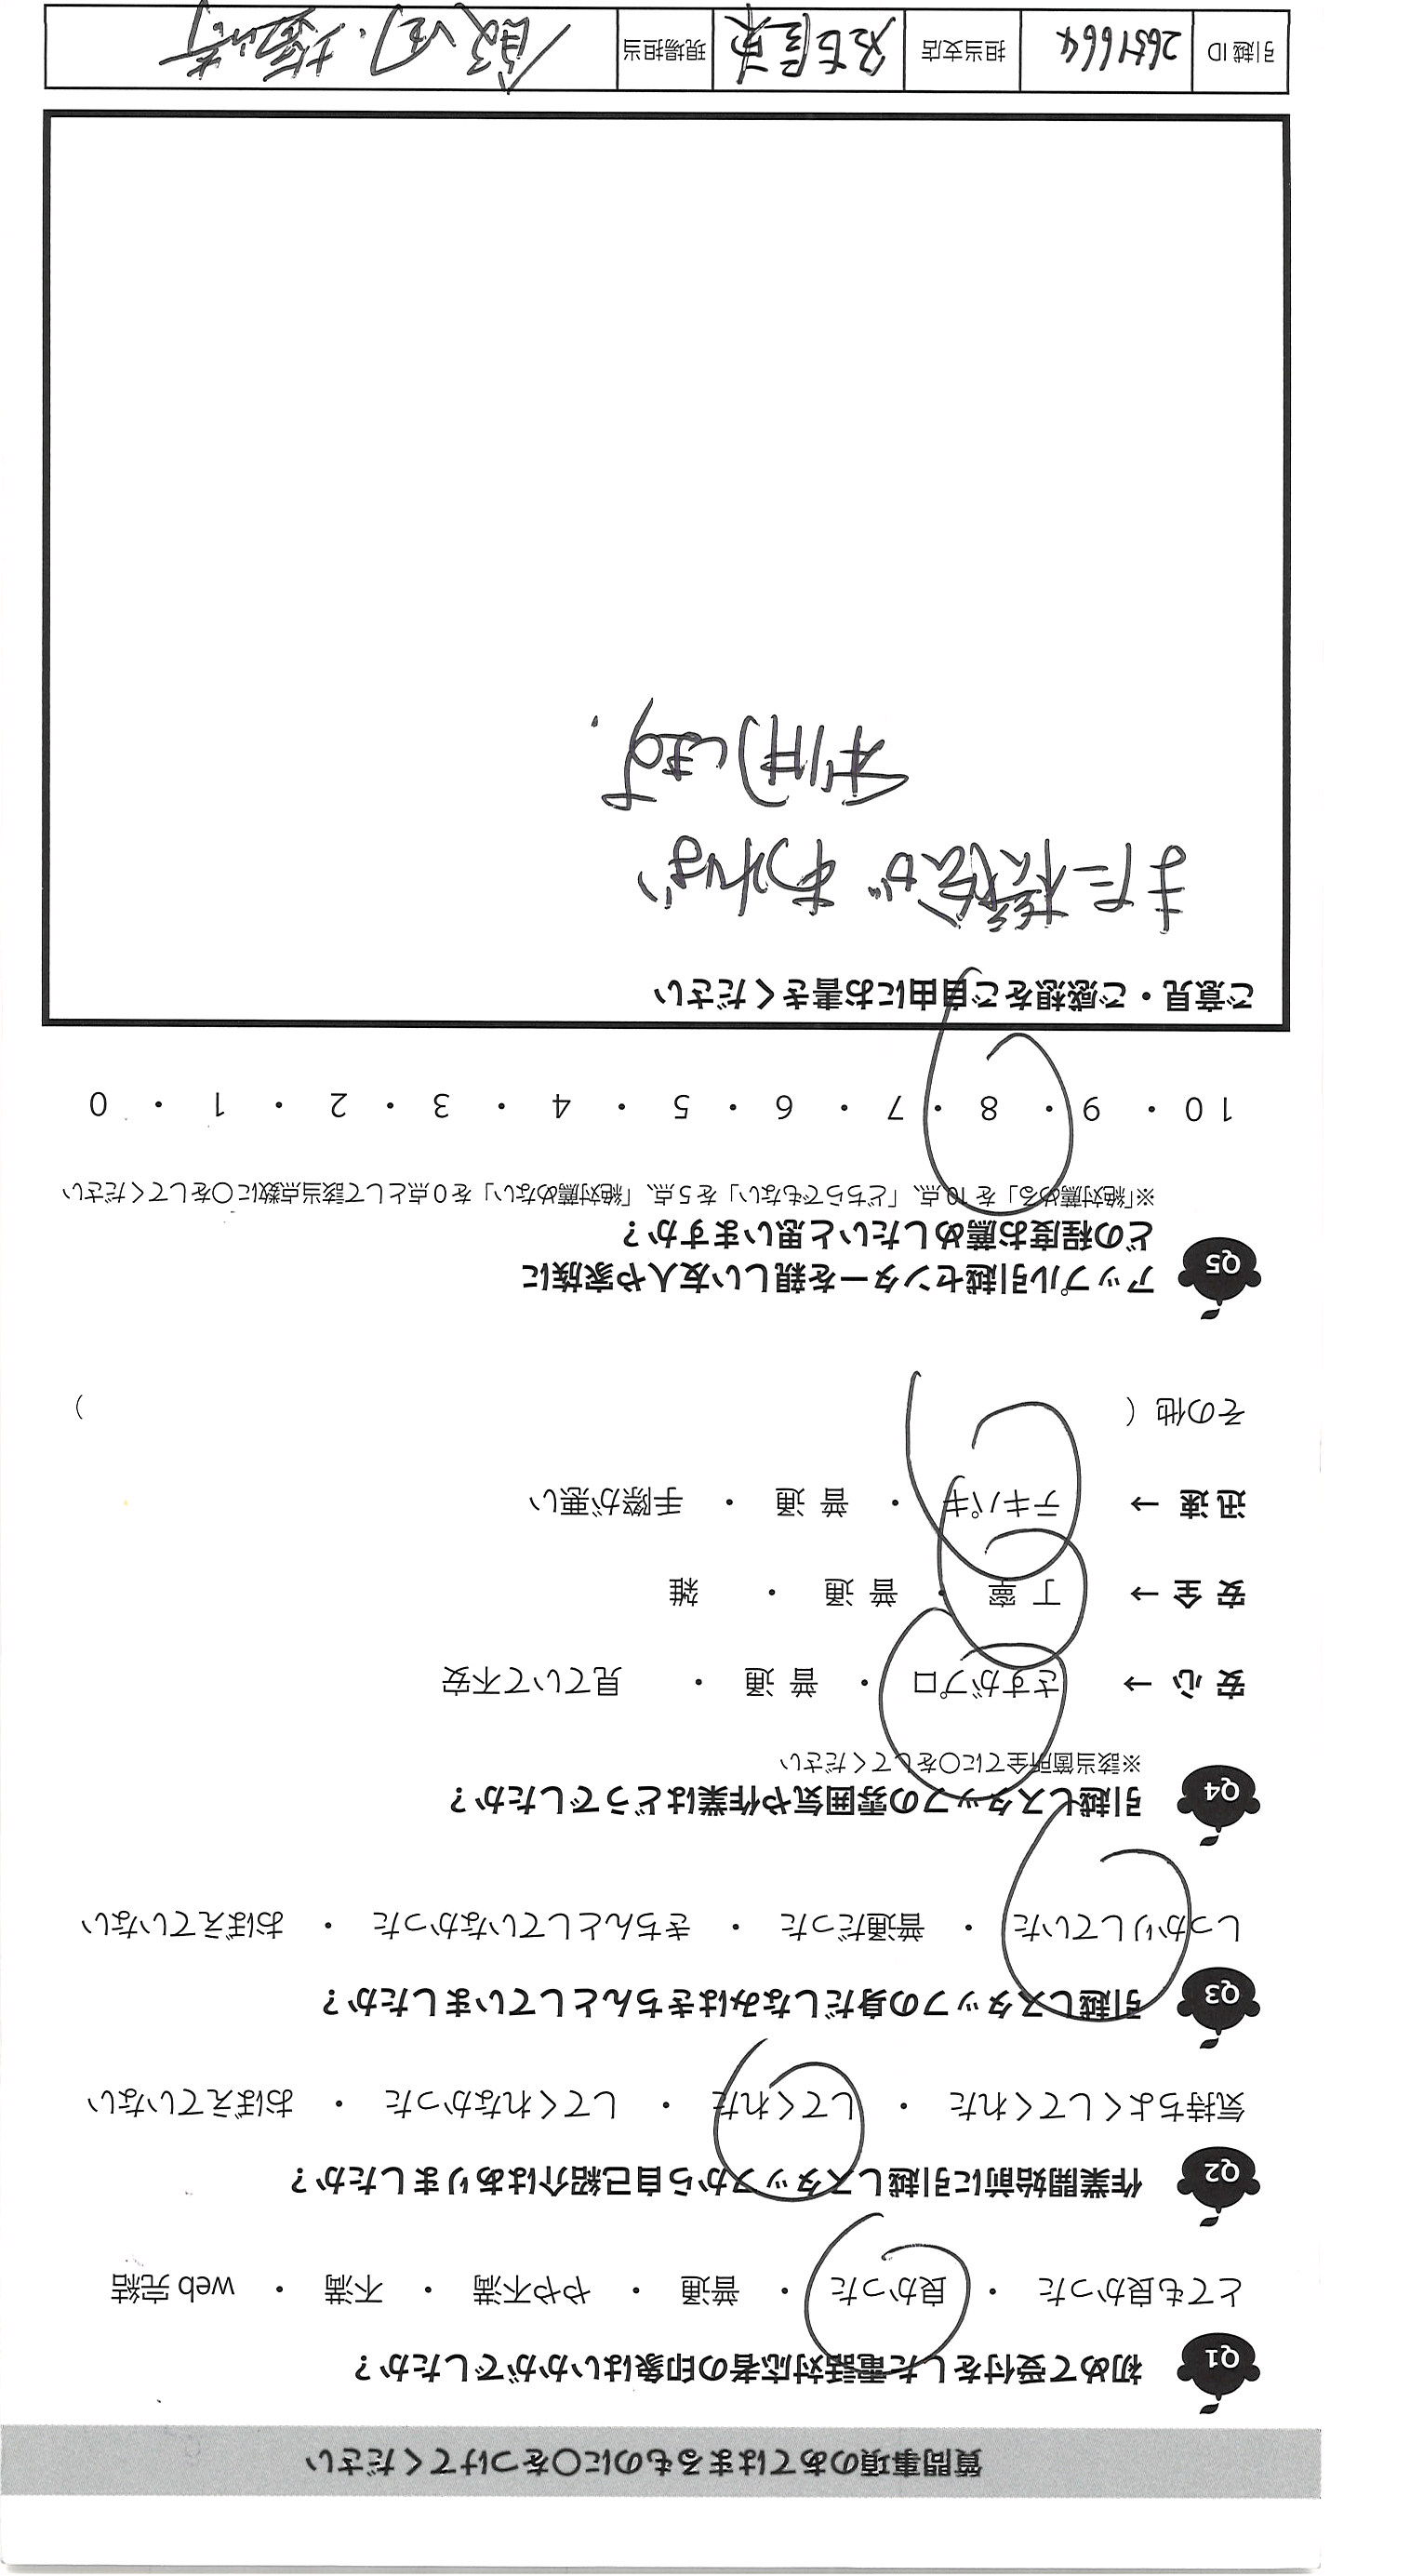 質問事項のあてはまるものに〇をつけてください
Q1 初めて受付をした電話対応者の印象はいかがでしたか？
とても良かった ・ 良かった ・ 普通 ・ やや不満 ・ 不満 ・ web 完結
Q2 作業開始前に引越しスタッフから自己紹介はありましたか？
気持ちよくしてくれた ・ してくれた ・ してくれなかった ・ おぼえていない
Q3 引越しスタッフの身だしなみはきちんとしていましたか？
しっかりしていた ・ 普通だった ・ きちんとしていなかった ・ おぼえていない
Q4 引越しスタッフの雰囲気や作業はどうでしたか？
※該当箇所全てに〇をしてください
安心 → さすがプロ ・ 普通 ・ 見ていて不安
安全 → 丁寧 ・ 普通 ・ 雑
迅速 → テキパキ ・ 普通 ・ 手際が悪い
その他（ ）
Q5 アップル引越センターを親しい友人や家族に
どの程度お薦めしたいと思いますか？
※「絶対薦める」を 10 点、「どちらでもない」を 5 点、「絶対薦めない」を 0 点として該当点数に〇をしてください
10 ・ 9 ・ 8 ・ 7 ・ 6 ・ 5 ・ 4 ・ 3 ・ 2 ・ 1 ・ 0
ご意見・ご感想をご自由にお書きください
また機会があれば
利用します.
引越 ID 2651664 担当支店 名古屋東 現場担当